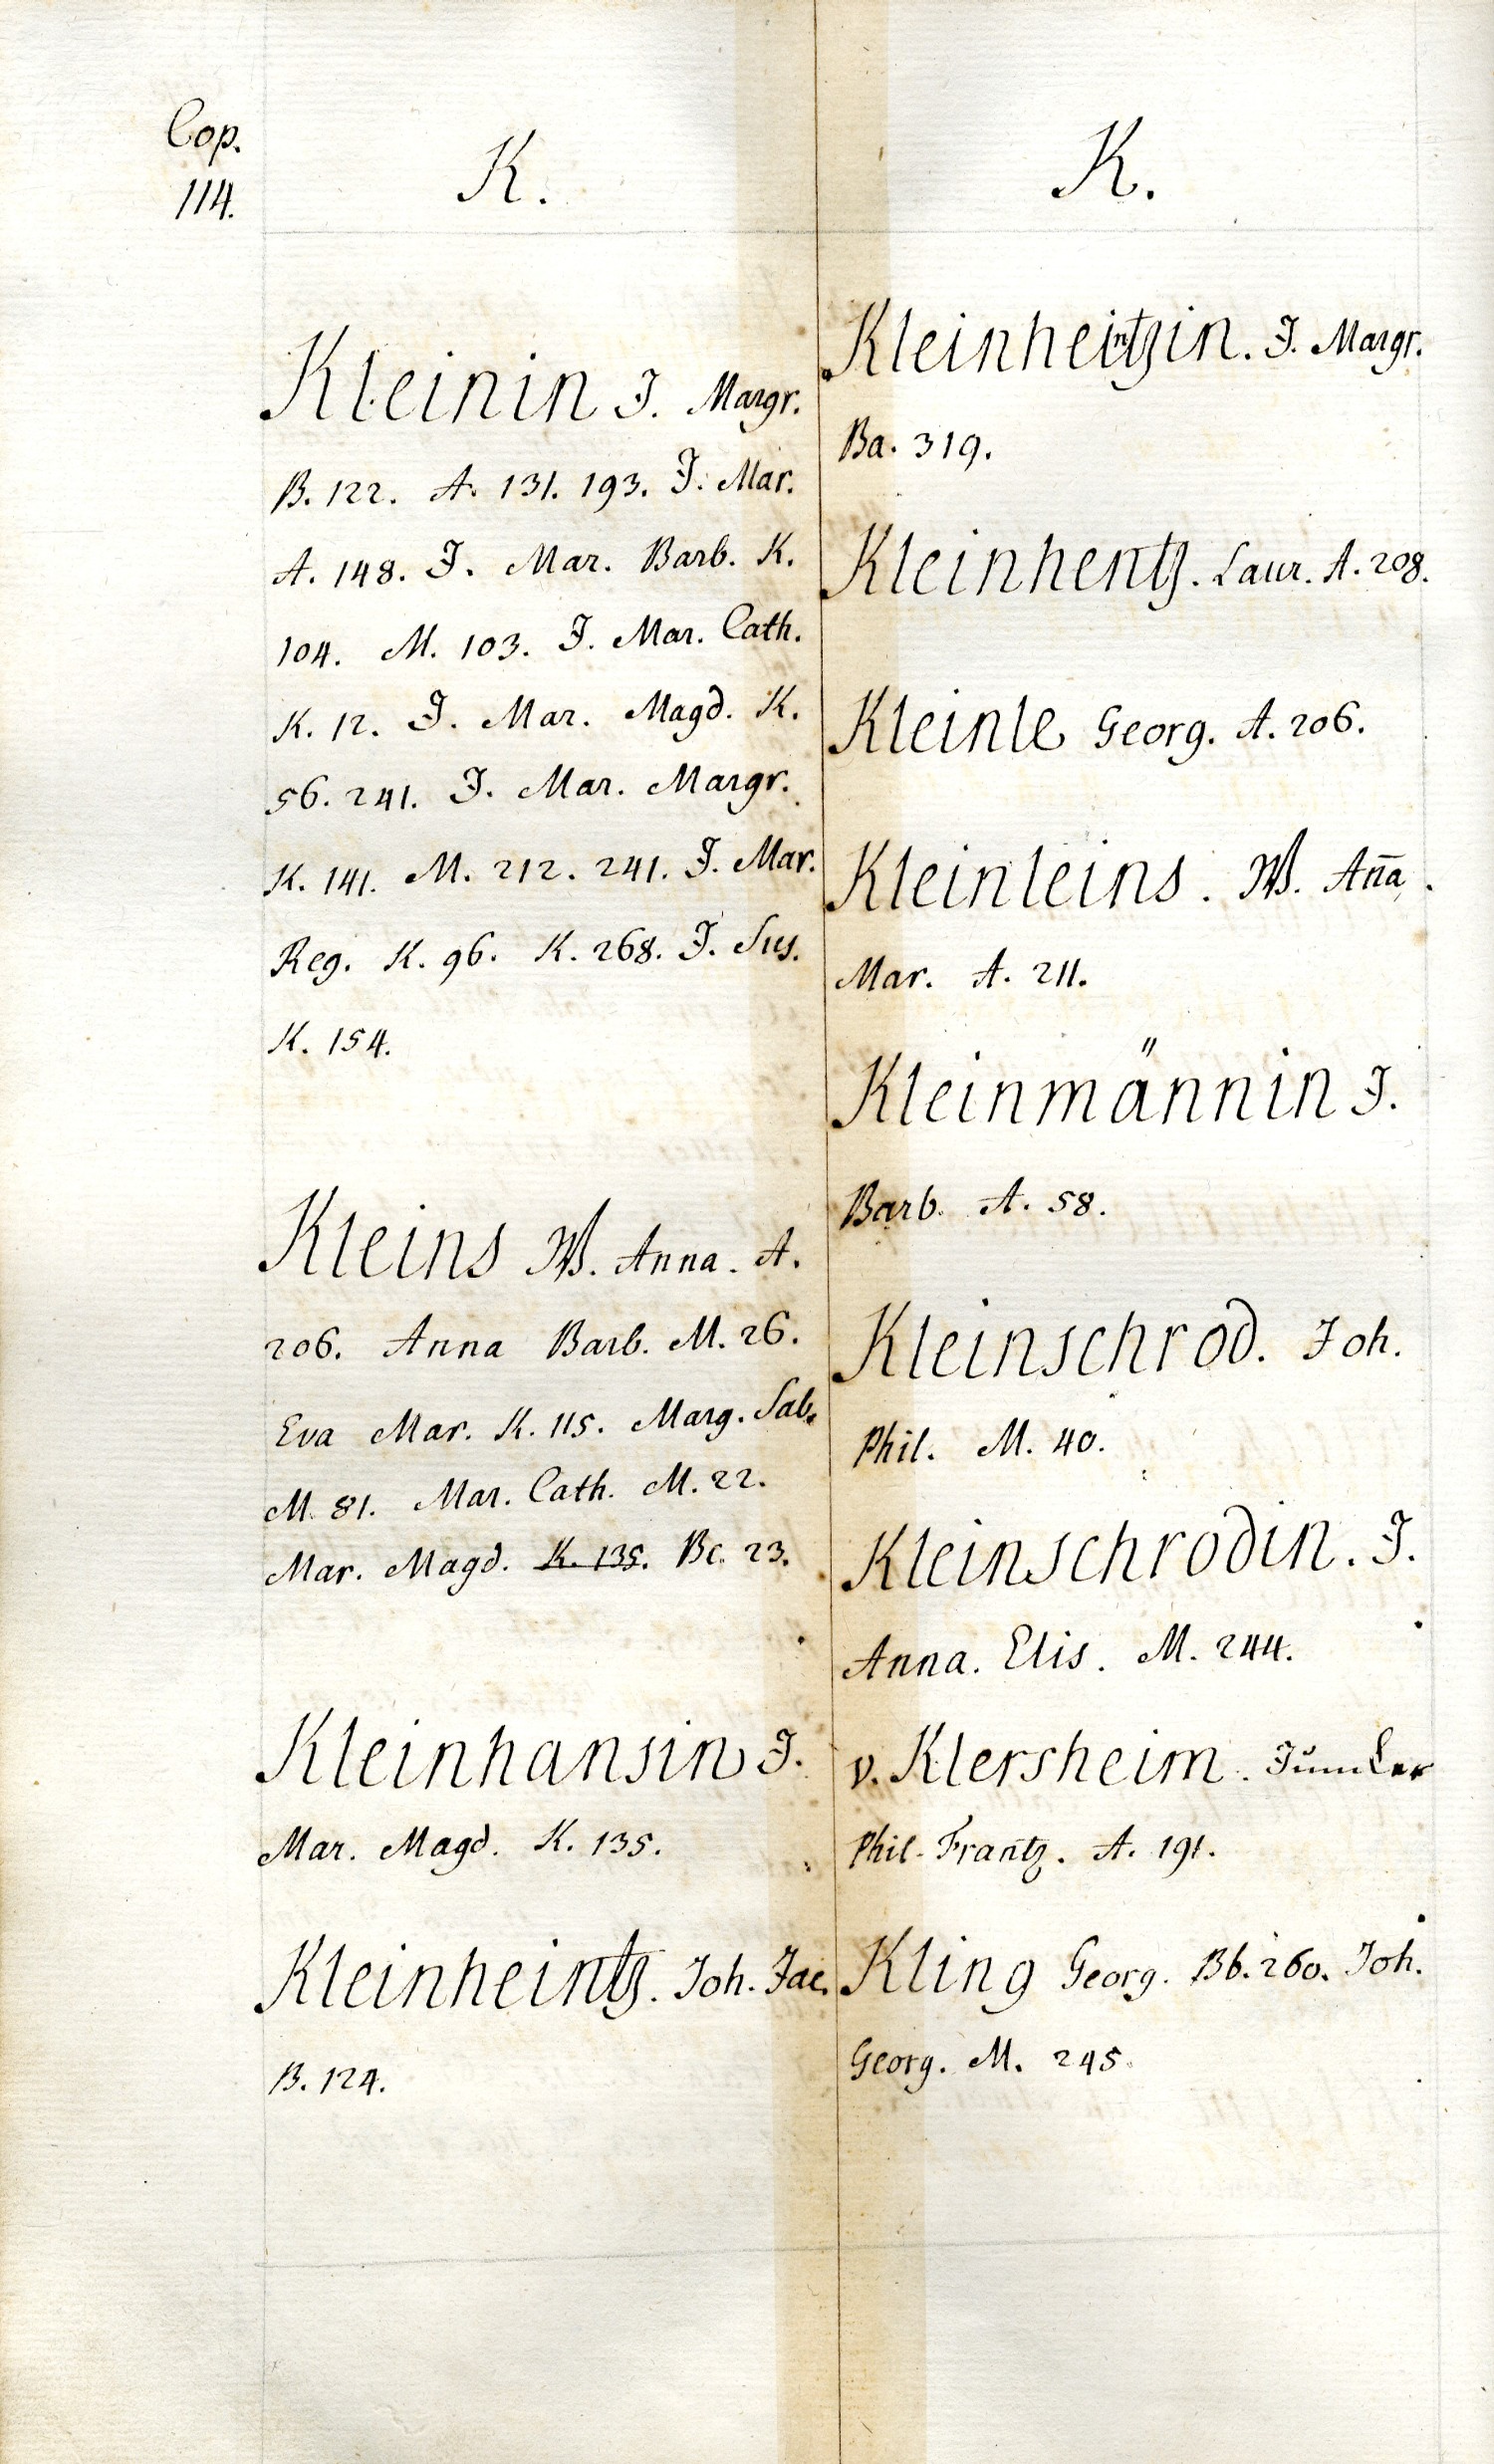 Cop.
114.
K.
Kleinin J. Margr.
B. 122. A. 131. 193. J. Mar.
A. 148. J. Mar. Barb. K.
104. M. 103. J. Mar. Cath.
K. 12. J. Mar. Magd. K.
56. 241. J. Mar. Margr.
K. 141. M. 212. 241. J. Mar.
Reg. K. 96. K. 268. J. Sus.
K. 154.
Kleins W. Anna. A.
206. Anna Barb. M. 26.
Eva Mar. K. 115. Marg. Sab.
M. 81. Mar. Cath. M. 22.
Mar. Magd. K. 135. Bc. 23.
Kleinhansin J.
Mar. Magd. K. 135.
Kleinheintz. Joh. Jac.
B. 124.
K.
Kleinheintzin. J. Margr.
Ba. 319.
Kleinhentz. Laur. A. 208.
Kleinle Georg. A. 206.
Kleinleins. W. Aña
Mar. A. 211.
Kleinmännin J.
Barb. A. 58.
Kleinschrod. Joh.
Phil. M. 40.
Kleinschrodin. J.
Anna. Elis. M. 244.
v. Klersheim.
Phil. Frantz. A. 191.
Kling Georg. Bb. 260. Joh.
Georg. M. 245.